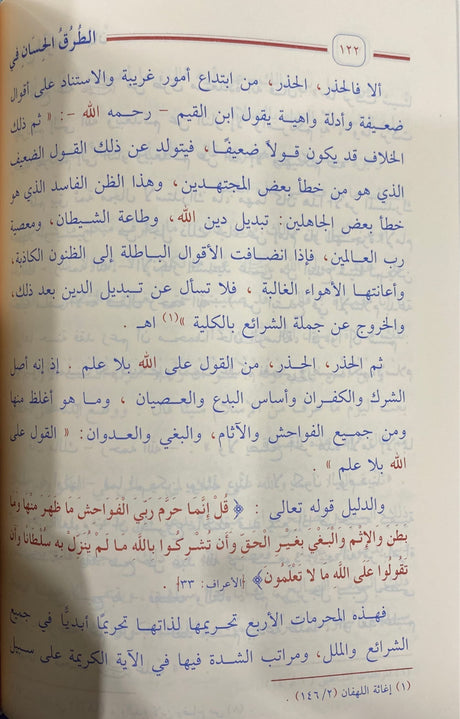 ١٢٢
الطُّرُقُ الحِسَان في
ألا فالحذر، الحذر، من ابتداع أمور غريبة والاستناد على أقوال
ضعيفة وأدلة واهية يقول ابن القيم – رحمه الله –: « ثم ذلك
الخلاف قد يكون قولاً ضعيفًا، فيتولد عن ذلك القول الضعيف
الذي هو من خطأ بعض المجتهدين، وهذا الظن الفاسد الذي هو
خطأ بعض الجاهلين: تبديل دين الله، وطاعة الشيطان، ومعصية
رب العالمين، فإذا انضافت الأقوال الباطلة إلى الظنون الكاذبة،
وأعانتها الأهواء الغالبة ، فلا تسأل عن تبديل الدين بعد ذلك،
والخروج عن جملة الشرائع بالكلية »(١) اهـ .
ثم الحذر، الحذر، من القول على الله بلا علم . إذ إنه أصل
الشرك والكفران وأساس البدع والعصيان ، وما هو أغلظ منها
ومن جميع الفواحش والآثام، والبغي والعدوان: « القول على
الله بلا علم » .
والدليل قوله تعالى : ﴿ قُلْ إِنَّمَا حَرَّمَ رَبِّيَ الْفَوَاحِشَ مَا ظَهَرَ مِنْهَا وَمَا
بَطَنَ وَالإِثْمَ وَالْبَغْيَ بِغَيْرِ الْحَقِّ وَأَن تُشْرِكُوا بِاللَّهِ مَا لَمْ يُنَزِّلْ بِهِ سُلْطَانًا وَأَن
تَقُولُوا عَلَى اللَّهِ مَا لا تَعْلَمُونَ﴾ [الأعراف: ٣٣] .
فهذه المحرمات الأربع تحريمها لذاتها تحريمًا أبديًّا في جميع
الشرائع والملل، ومراتب الشدة فيها في الآية الكريمة على سبيل
(١) إغاثة اللهفان (١٤٦/٢) .